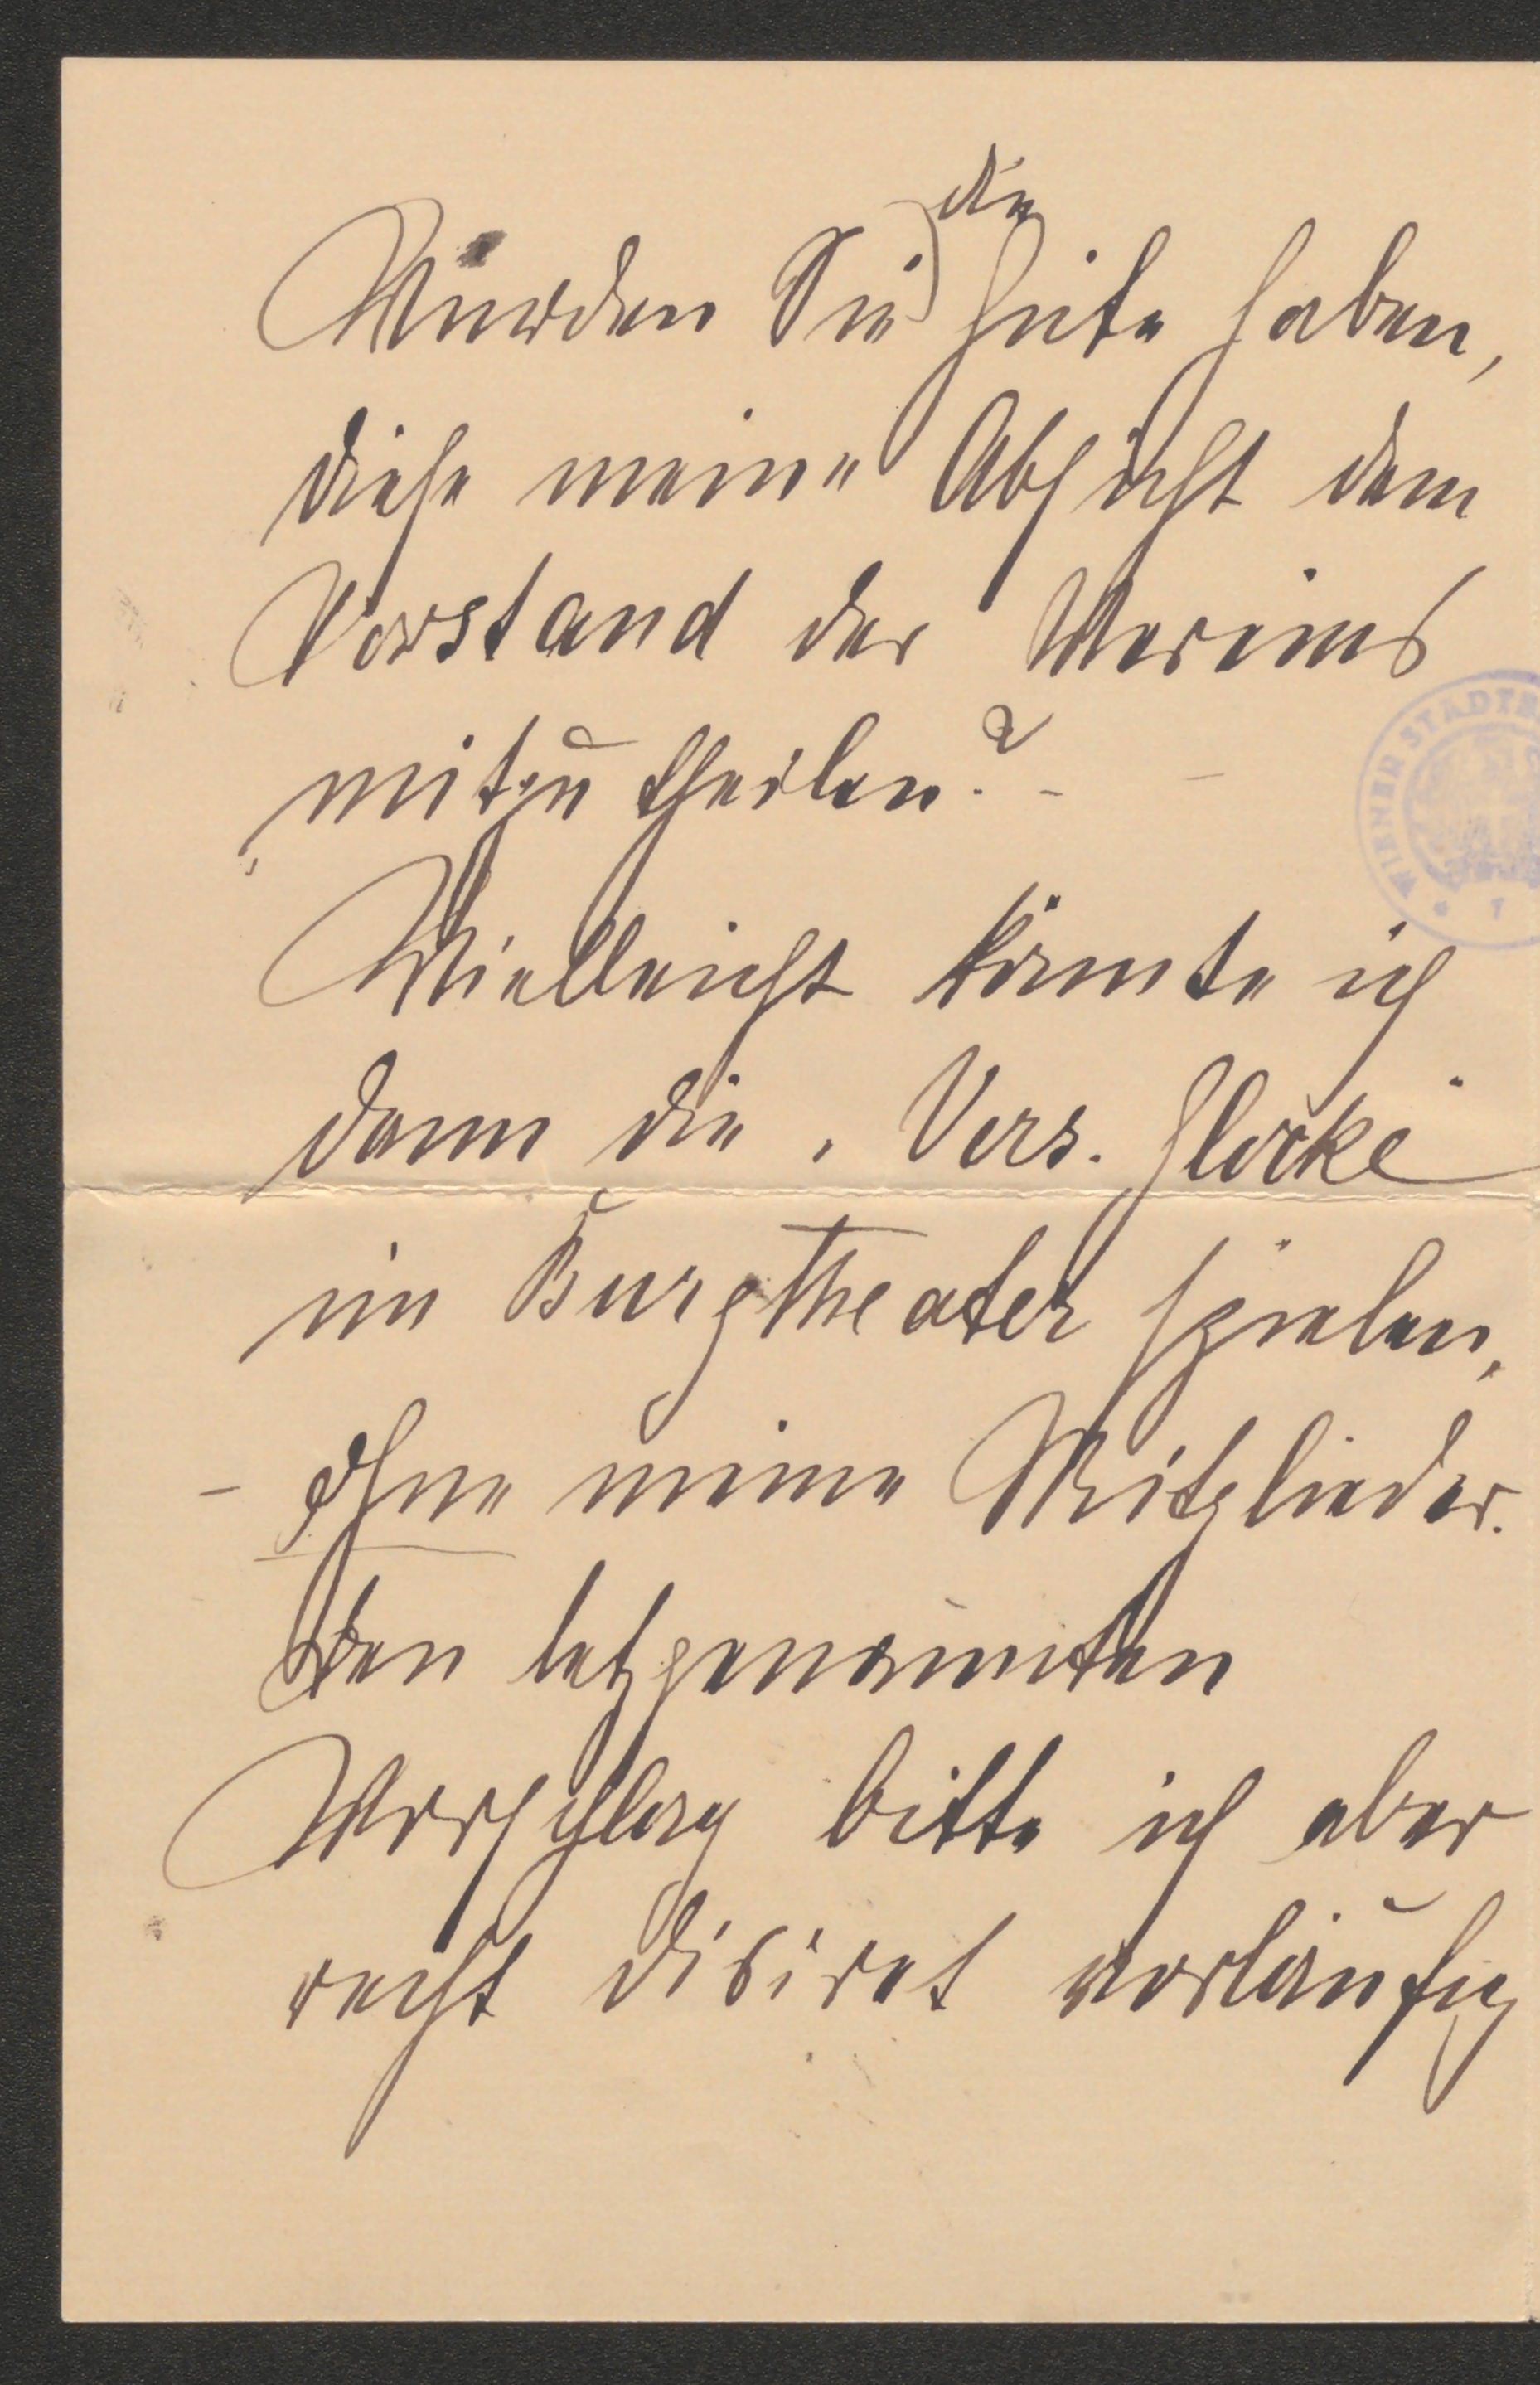 die
Würden Sie Güte haben,
diese meine Absicht dem
Vorstand des Vereins
mitzu theilen? -
Vielleicht könnte ich
dann die „Vers. Glocke"
im Burgtheater spielen,
- ohne meine Mitglieder.
Den letzgenannten
Vorschlag bitte ich aber
recht discret vorläufig
WIENER STADTB